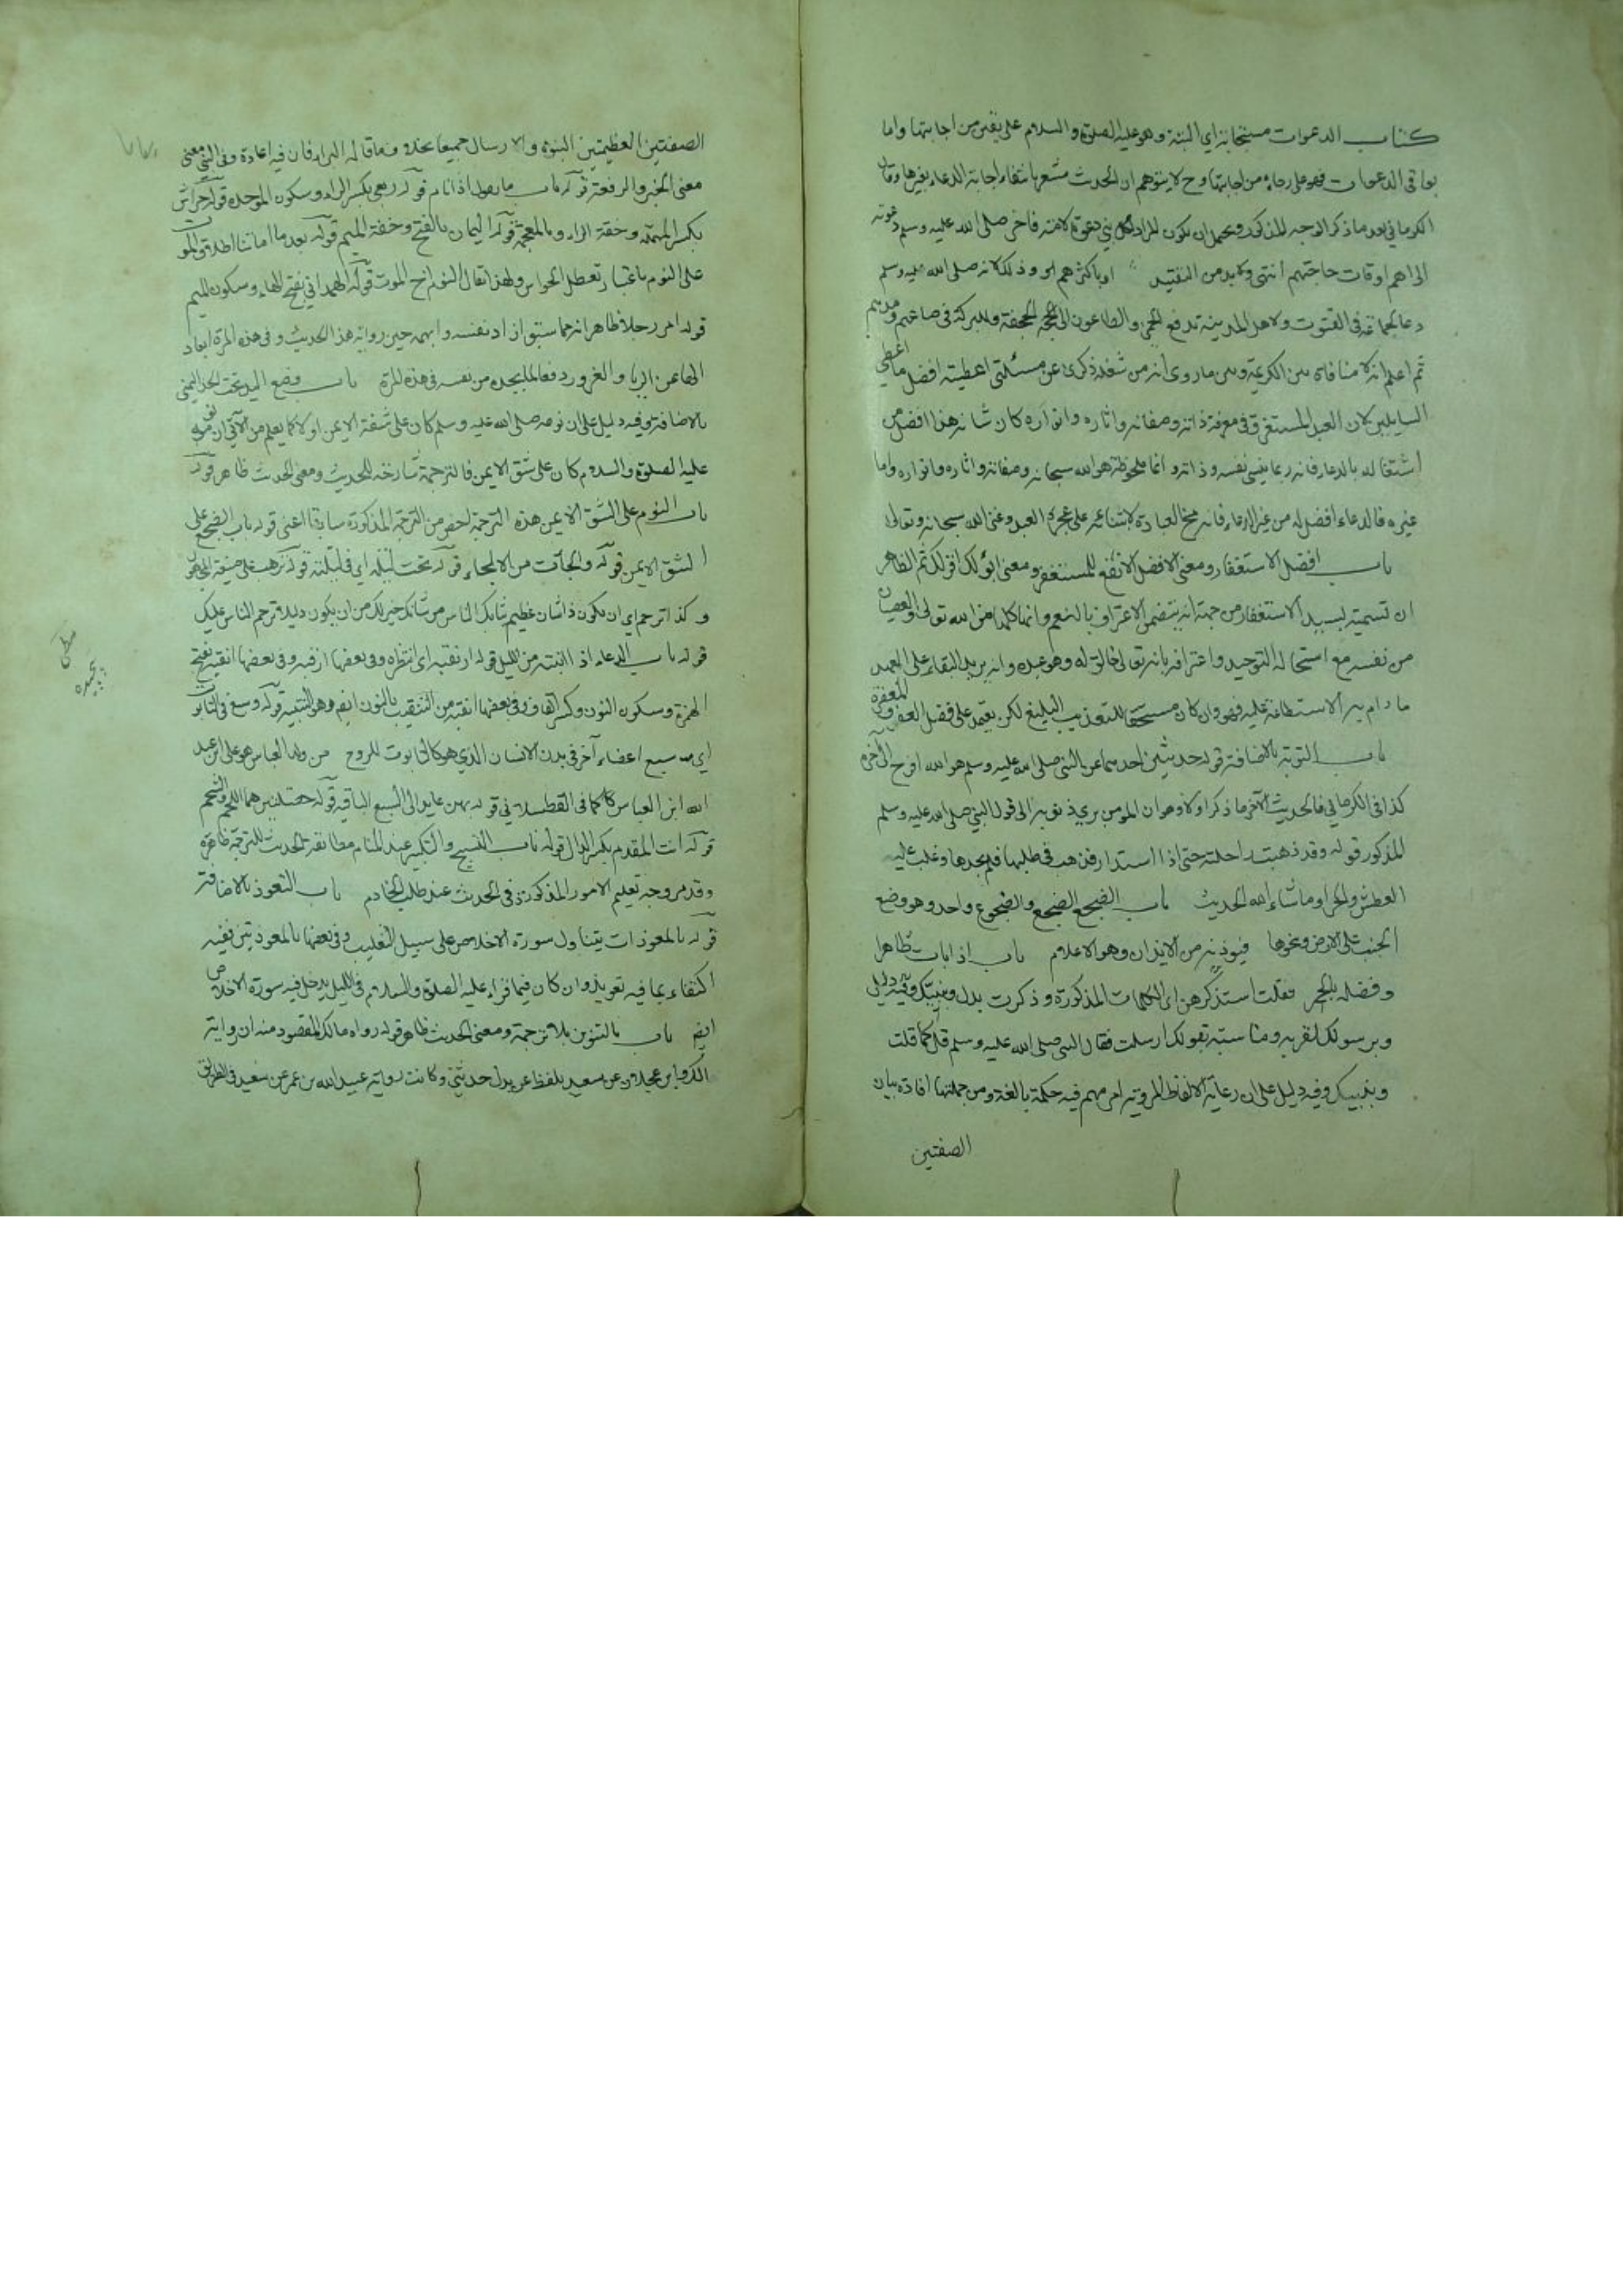 كتاب الدعوات مستجابة اي البتة وهو عليه الصلوة والسلام على يقين من اجابتها واما
بواقى الدعوات فهو على رجاء من اجابتها وح لا يتوهم ان الحديث مشعر بانتفاء اجابة الدعاء بغيرها وقال
الكرماني بعد ما ذكر الوجه المذكور ويحتمل ان يكون المراد لكل نبي دعوة لامته فاخر صلى الله عليه وسلم دعوته
الى اهم اوقات حاجتهم انتهى ولابد من التقييد او باكثرهم او وذلك لانه صلى الله عليه وسلم
دعا لجماعة فى القنوت ولاهل المدينة بدفع الحمى والطاعون الى الجحفة والبركة فى صاعهم ومدهم
ثم اعلم انه لا منافاة بين الكريمة وبين ما روى انه من شغله ذكرى عن مسئلتى اعطيته افضل ما اعطي
السايلين لان العبد المستغرق فى معرفة ذاته وصفاته واثاره وانواره كان شانه هذا افضل من
اشتغاله بالدعاء فانه ربما ينسى نفسه وذاته وانما ملحوظه هو الله سبحانه وصفاته واثاره وانواره واما
غيره فالدعاء افضل له من غير الدعاء فانه مخ العبادة لابتنائه على عجز العبد وغنى الله سبحانه وتعالى
باب افضل الاستغفار ومعنى الافضل الانفع للمستغفر ومعنى ابوء لك اقر لك ثم الظاهر
ان تسميته بسيد الاستغفار من جهة انه يتضمن الاعتراف بالنعم وانها كلها من الله تعالى والعصيان
من نفسه مع استحاله التوحيد واعترافه بانه تعالى خالق له وهو عبده وانه يريد البقاء على العهد
ما دام يبر الاستطاعة عليه فهو وان كان مستحقا للتعذيب البليغ لكن يعتمد على فضل العفو والمغفرة
باب التوبة بالاضافة قوله حديثين احدهما عن النبي صلى الله عليه وسلم هو الله افرح الى آخره
كذا فى الكرماني فالحديث الآخر ما ذكر اولا وهو ان المومن يرى ذنوبه الى قول النبي صلى الله عليه وسلم
المذكور قوله وقد ذهبت راحلته حتى اذا استدار فذهب فى طلبها فلم يجدها وغلب عليه
العطش والحر او ما شاء الله الحديث باب الضجع الضجع والضجوع واحد وهو وضع
الجنب على الارض ونحوها فيوذنه من الايذان وهو الاعلام باب اذا بات طاهرا
وفضله بالجر فقلت استذكرهن اى الكلمات المذكورة وذكرت بدل ونبيك وفيه دليل
وبرسولك لقربه ومناسبته بقولك ارسلت فقال النبي صلى الله عليه وسلم قل كما قلت
وبنبيك وفيه دليل على ان رعاية الالفاظ المروية امر مهم فيه حكمة بالغة ومن جملتها افادة بيان
الصفتين
الصفتين العظيمتين النبوة والارسال جميعا بخلاف ما قاله البراء فان فيه اعادة وفى النبي معنى
معنى الخبر والرفعة قوله باب ما يقول اذا نام قوله ربعى بكسر الراء وسكون الموحدة قوله حراش
بكسر المهملة وخفة الراء وبالمعجمة قوله اليمان بالفتح وخفة الميم قوله بعد ما اماتنا اطلاق الموت
على النوم باعتبار تعطل الحواس ولهذا يقال النوم اخ الموت قوله الهمداني بفتح الهاء وسكون الميم
قوله امر رجلا ظاهرا نه مما سبق اراد نفسه وابهمه حين روايته هذا الحديث وفى هذه المرة ابعاد
الها عن الريا والغرور دفعا لما يجده من نفسه فى هذه المرة باب وضع اليد تحت الخد اليمنى
بالاضافة وفيه دليل على ان نومه صلى الله عليه وسلم كان على شقة الايمن اولا كما يعلم من الآتى ان نومه
عليه الصلوة والسلام كان على شق الايمن فالترجمة شارحة للحديث ومعنى الحديث ظاهر قوله
باب النوم على الشق الايمن هذه الترجمة اخص من الترجمة المذكورة سابقا اعنى قوله باب الضجع على
الشق الايمن قوله والجأت من الالجاء قوله تحت ليلته اى فى ليلته قوله ترهب على صيغة المجهول
وكذا ترحم اى ان يكون ذا شان عظيم شابك الناس من شانك خير لك من ان يكون ذليلا ترحم الناس عليك
قوله باب الدعاء اذا انتبه من الليل قوله ارتقبه اى انتظره وفى بعضها ارقبه وفى بعضها انقبه بفتح
الهمزة وسكون النون وكسر القاف وفى بعضها انقبه من التنقيب بالنون ايضم وهو التنبيه قوله وسبع فى التابوت
اى سبع اعضاء آخر فى بدن الانسان الذي هو كالتابوت للروح من ولد العباس هو على ابن عبد
الله ابن العباس كما فى القسطلاني قوله بهن عايد الى السبع الباقية قوله خصلتين هما اللحم والشحم
قوله انت المقدم بكسر الدال قوله باب التسبيح والتكبير عند المنام مطابقة الحديث للترجمة ظاهرة
وقد مر وجه تعليم الامور المذكورة فى الحديث عند طلب الخادم باب التعوذ بالاضافة
قوله بالمعوذات يتناول سورة الاخلاص على سبيل التغليب وفى بعضها بالمعوذتين ففيه
اكتفاء بما فيه تعويذ وان كان فيما قراء عليه الصلوة والسلام فى الليل يدخل فيه سورة الاخلاص
ايضم باب بالتنوين بلا ترجمة ومعنى الحديث ظاهر قوله رواه مالك المقصود منه ان رواية
مالك وابن عجلان عن سعيد بلفظ عن بدل حدثنى وكانت رواية عبيد الله بن عمر عن سعيد فى الطريق